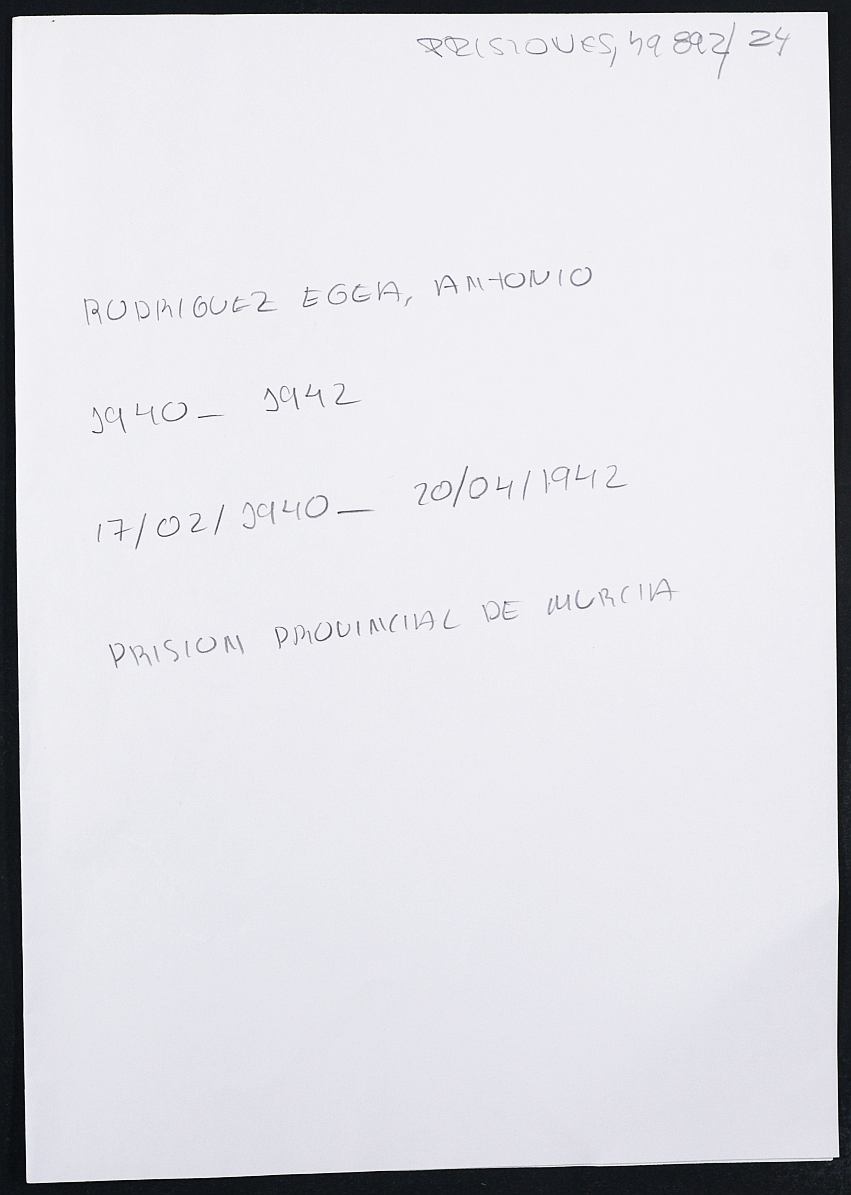 PRISIONES, 49 892/ 24
RODRIGUEZ EGEA, ANTONIO
1940 - 1942
17/02/1940 - 20/04/1942
PRISION PROVINCIAL DE MURCIA